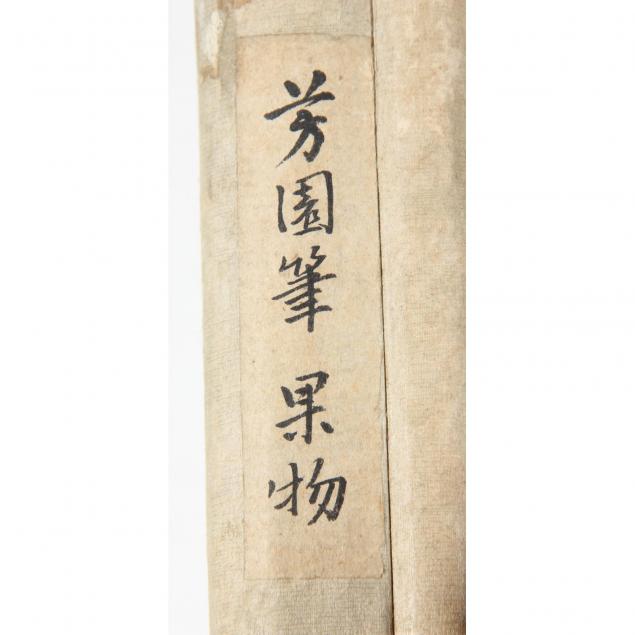 芳園筆 果物